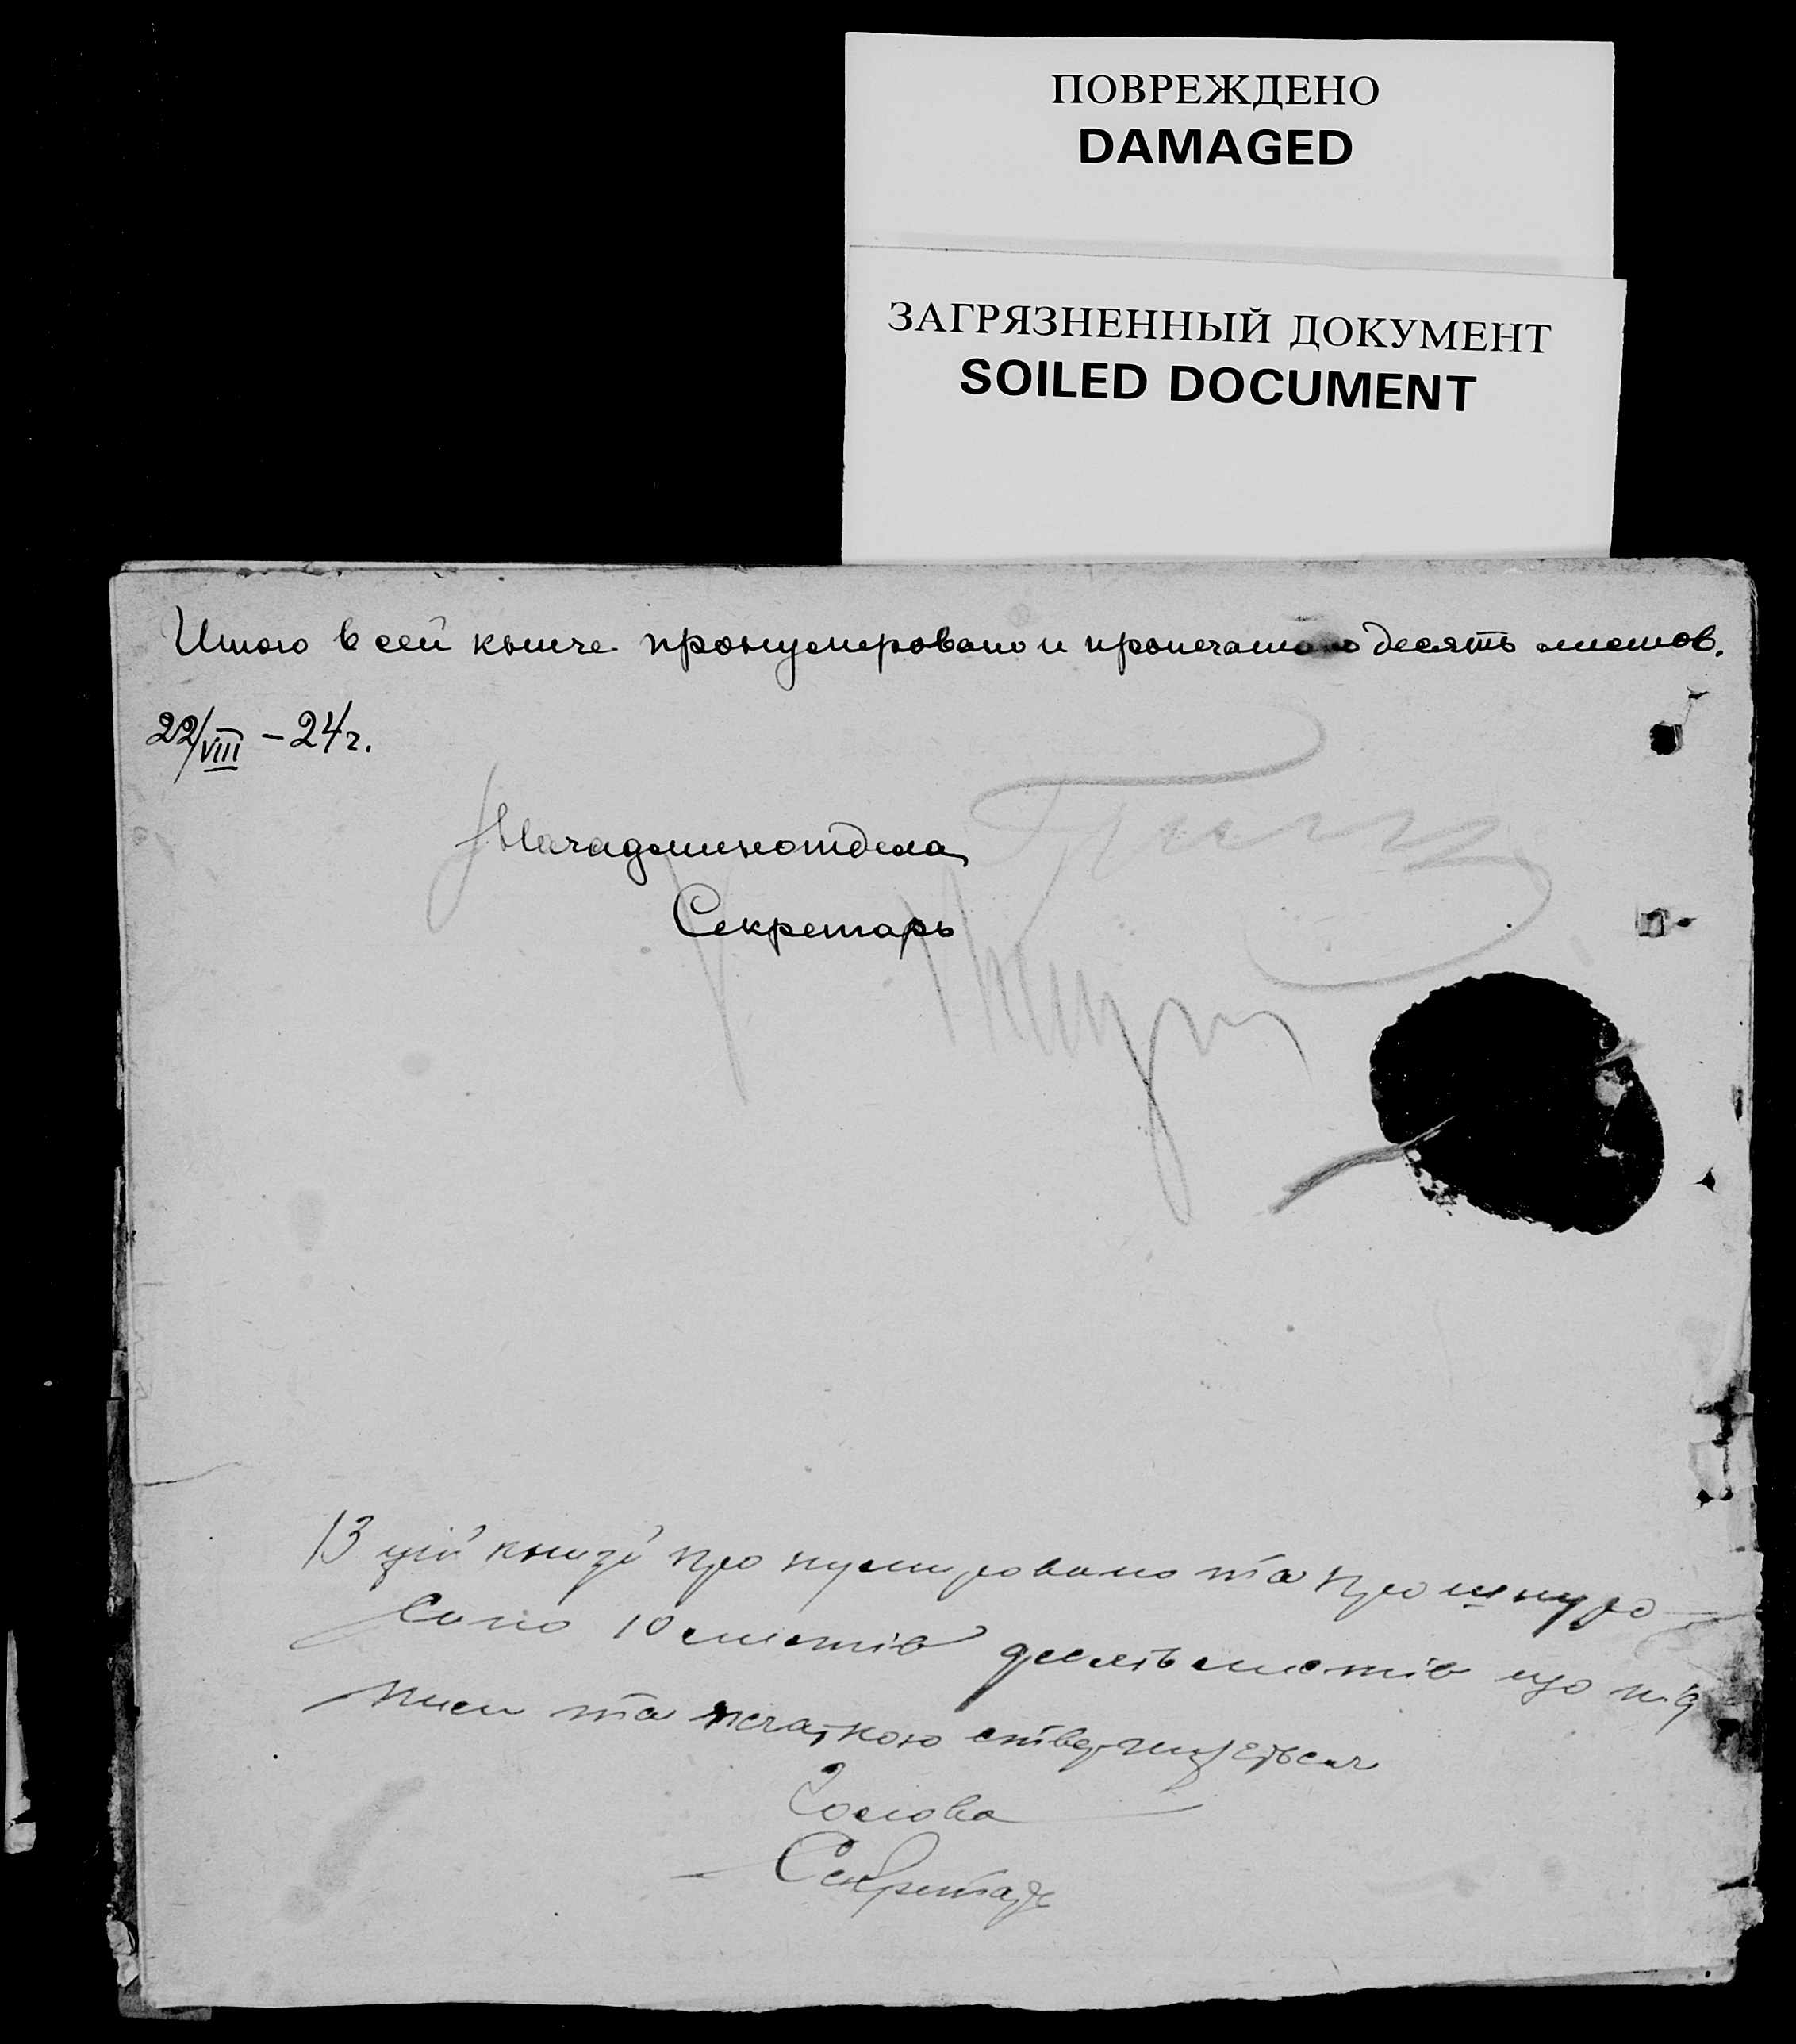 ПОВРЕЖДЕНО
DAMAGED
ЗАГРЯЗНЕННЫЙ ДОКУМЕНТ
SOILED DOCUMENT
Итого в сей книге пронумеровано и пропечатано десять листов.
22/VIII – 24 г.
Начадминотдела
Секретарь
В цій книзі пронумировано та прошнуро-
вано 10 листів десять листів що під
писи та печаткою ствержується
Голова
Секретарь